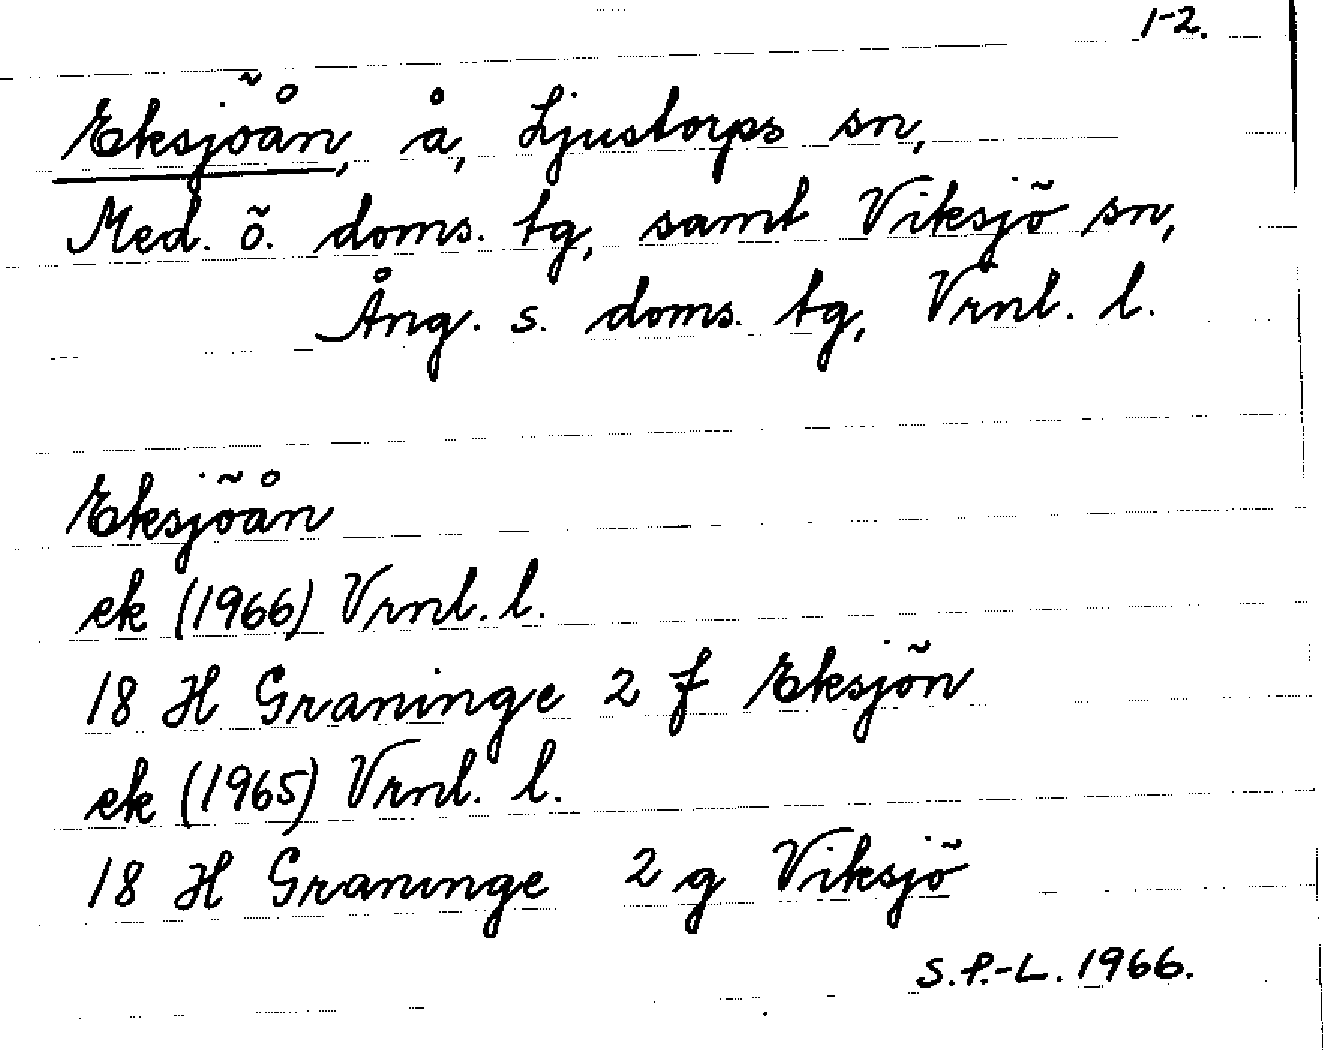 1-2.
Eksjöån, å, Ljustorps sn,
Med. ö. doms. tg, samt Viksjö sn,
Ång. s. doms. tg, Vrnl. l.
Eksjöån
ek (1966) Vrnl. l.
18 H Graninge 2 f Eksjön
ek (1965) Vrnl. l.
18 H Graninge 2 g Viksjö
S.P.-L. 1966.